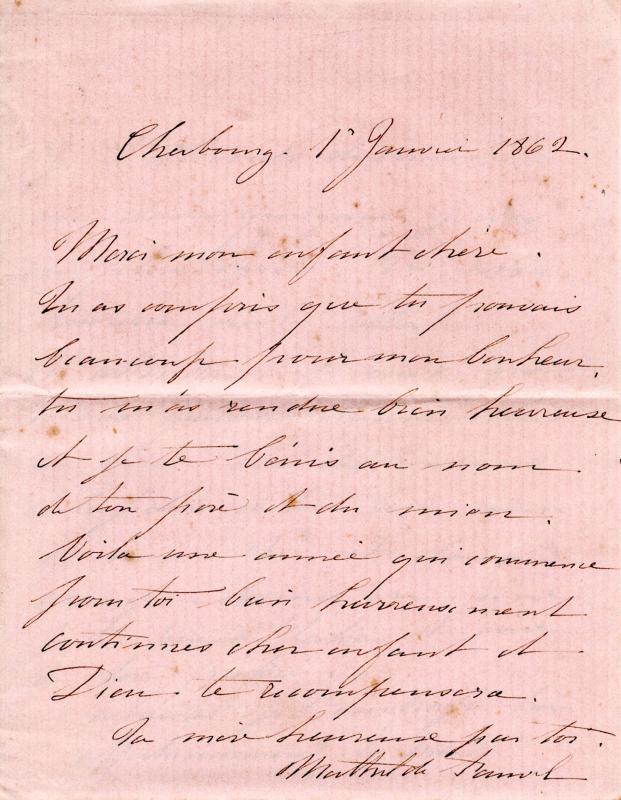 Cherbourg. 1r Janvier 1862.
Merci mon enfant chère.
Tu as compris que tu pouvais
beaucoup pour mon bonheur,
tu m'as rendue bien heureuse
et je te bénis au nom
de ton père et du mien.
Voila une année qui commence
pour toi bien heureusement
continues cher enfant et
Dieu te recompensera.
Ta mère heureuse par toi.
Mathilde